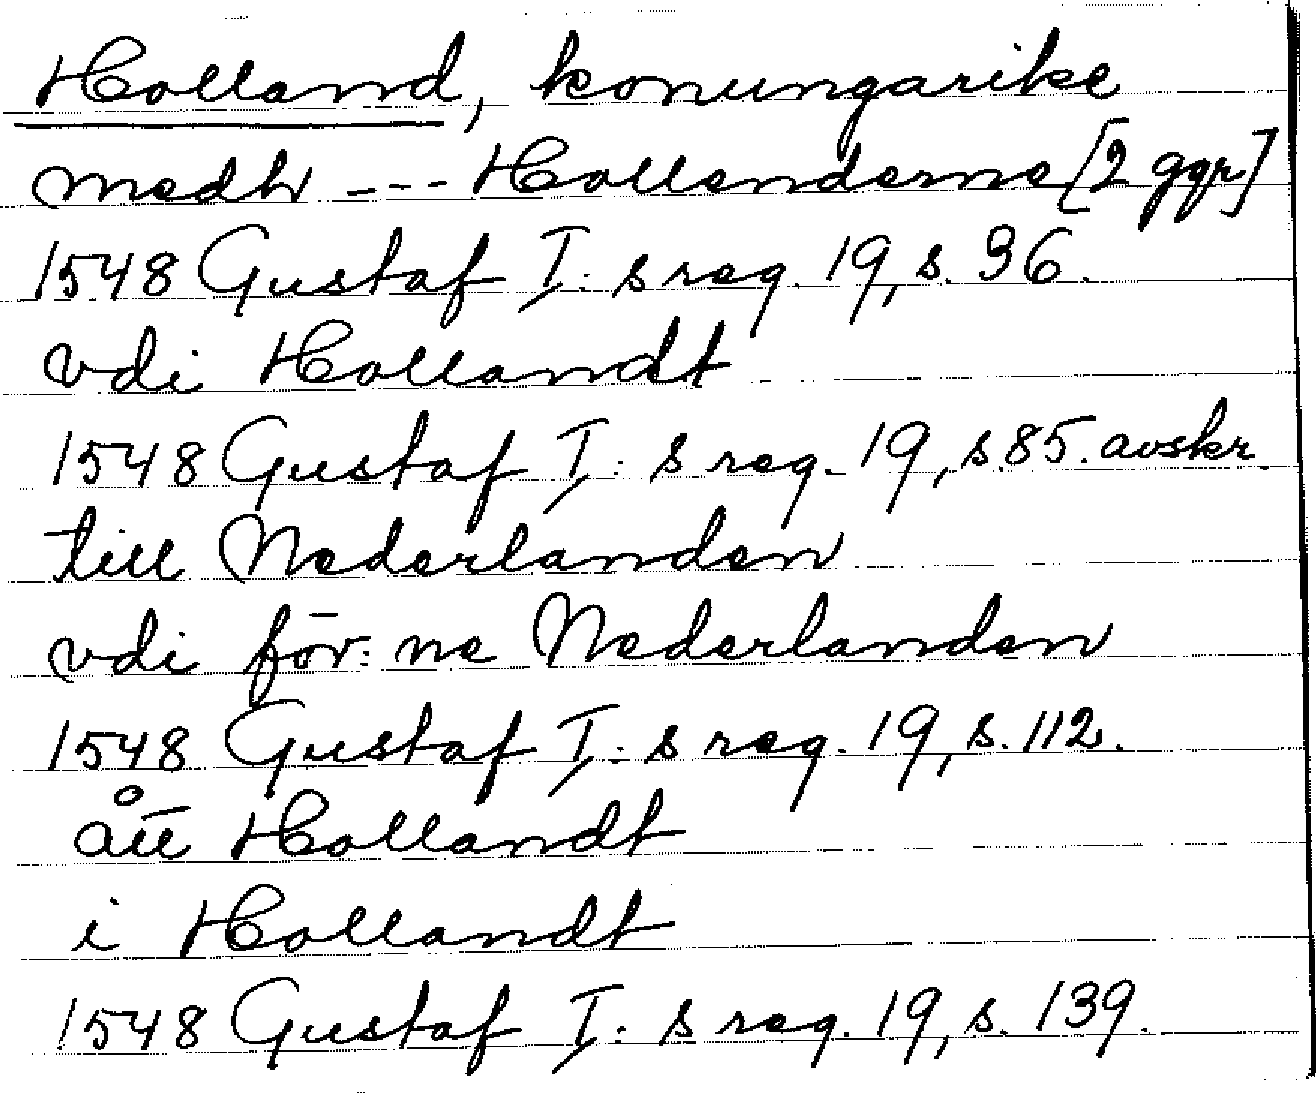 Holland, konungarike
medh --- Hollenderne [2 ggr]
1548 Gustaf I:s reg. 19, s. 36.
vdi Hollandt
1548 Gustaf I:s reg. 19, s. 85. avskr.
till Nederlanden
vdi för:ne Nederlanden
1548 Gustaf I:s reg. 19, s. 112.
Hollandt
i Hollandt
1548 Gustaf I:s reg. 19, s. 139.